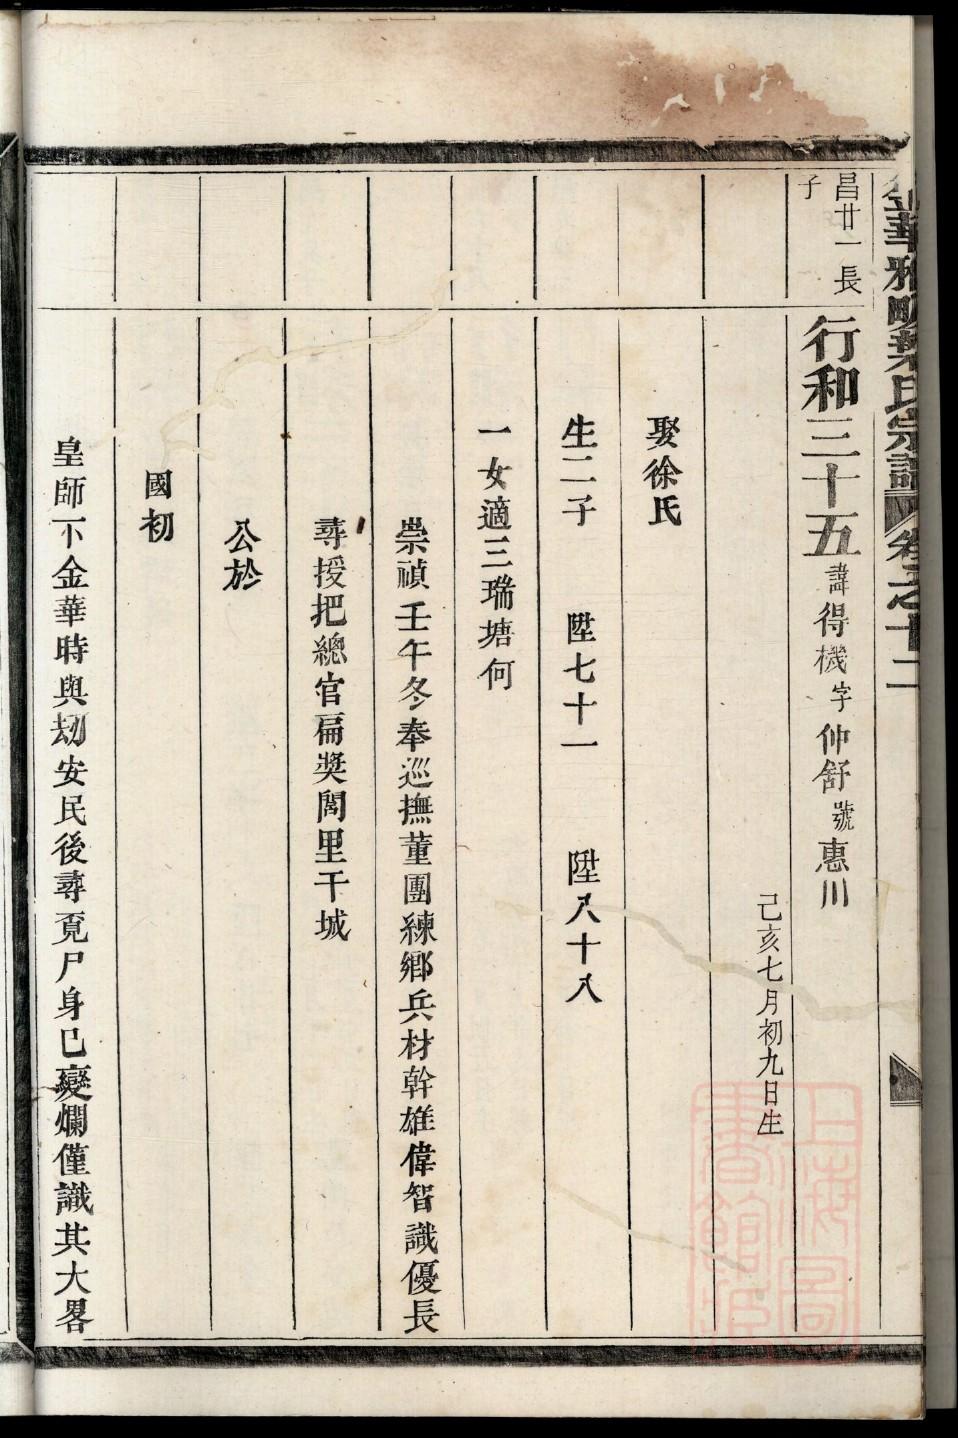 金華雅畈葉氏宗譜 卷之十二
昌廿一長
子
行和三十五 諱得機字仲舒號惠川
己亥七月初九日生
娶徐氏
生二子 陞七十一 陞八十八
一女適三瑞塘何
崇禎壬午冬奉巡撫董團練鄉兵材幹雄偉智識優長
尋授把總官扁奬閭里干城
公於
國初
皇師下金華時與刼安民後尋覔尸身已變爛僅識其大畧
上海圖
書館藏